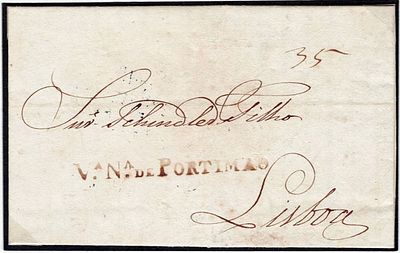 35
Snr. Schindler Filho
V.A N.A DE PORTIMAO
Lisboa